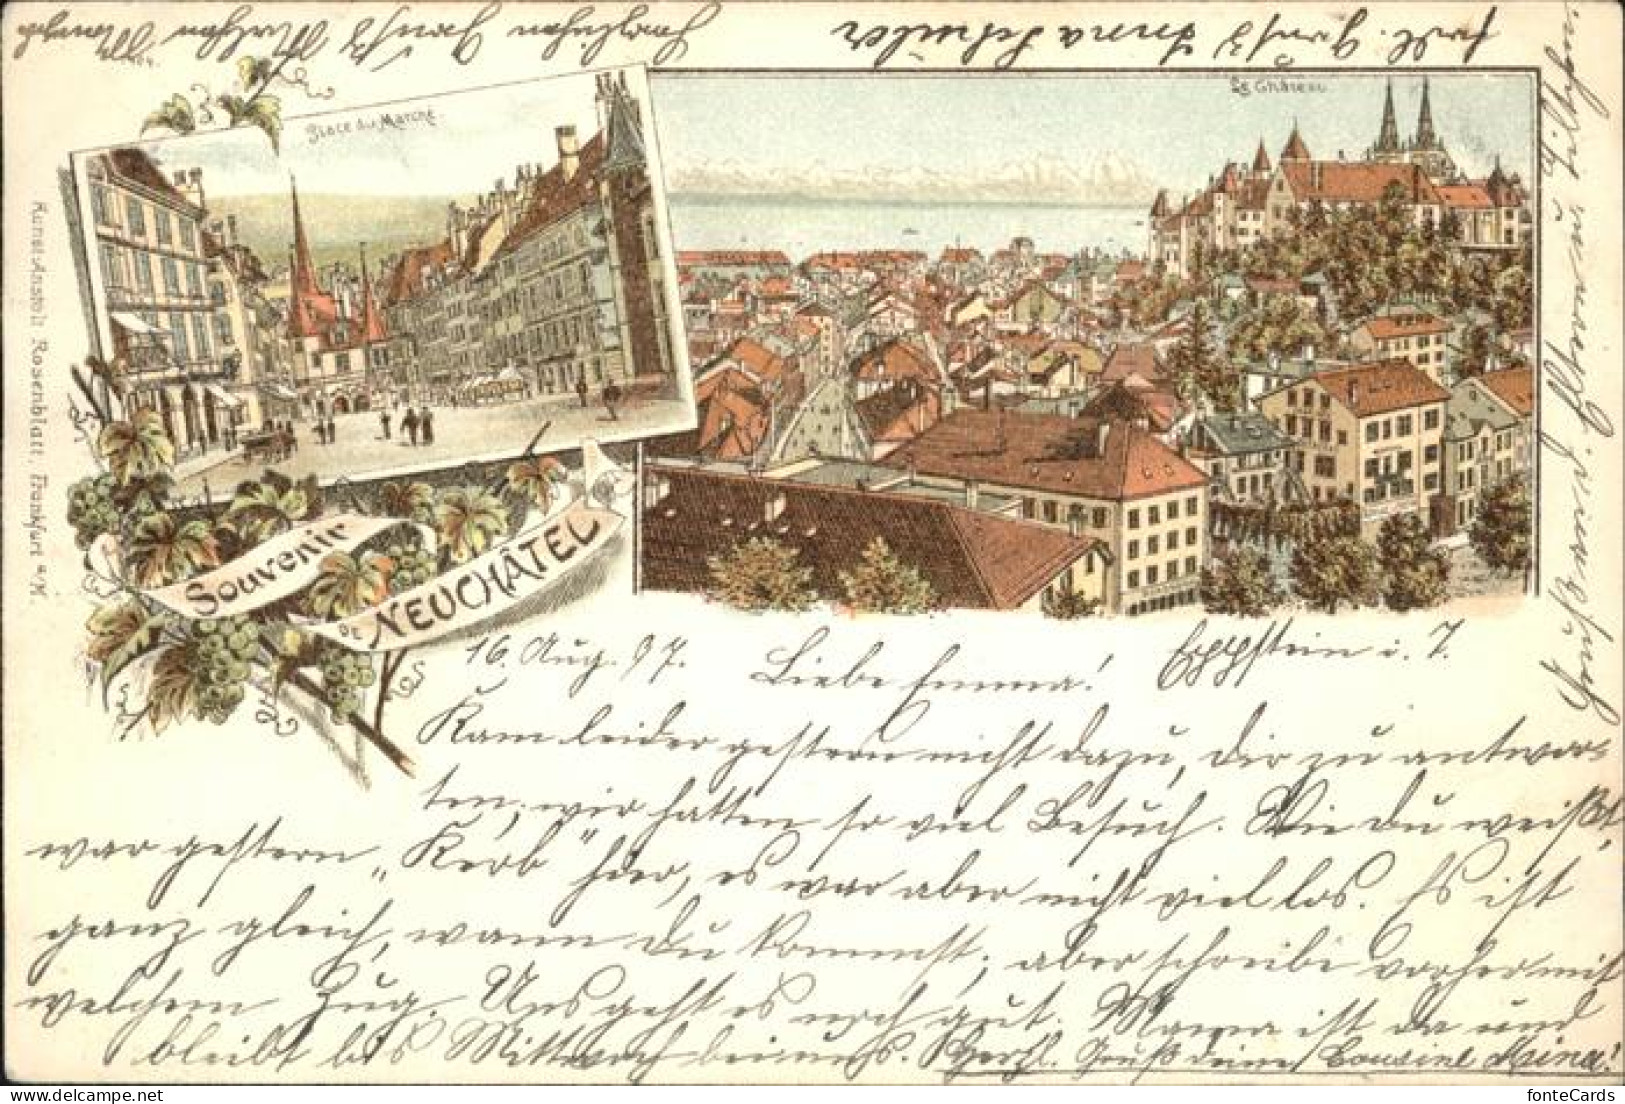 Herzlichen Gruß
frdl. Gruß Anna Schuler
Place du Marché.
Le Château
Kunst-Anstalt Rosenblatt, Frankfurt a/M.
Souvenir
DE NEUCHÂTEL
16. Aug. 97. Liebe Emma! Eppstein i. T.
Kam leider gestern nicht dazu, Dir zu antwor-
ten; wir hatten so viel Besuch. Wie Du weißt,
war gestern „Kerb“ hier, es war aber nicht viel los. Es ist
ganz gleich, wann Du kommst; aber schreibe vorher mit
welchem Zug. Uns geht es noch gut. Mama ist da und
bleibt bis Mittwoch bei uns. Herzl. Gruß Deine Cousine
Gruß und
fonteCards